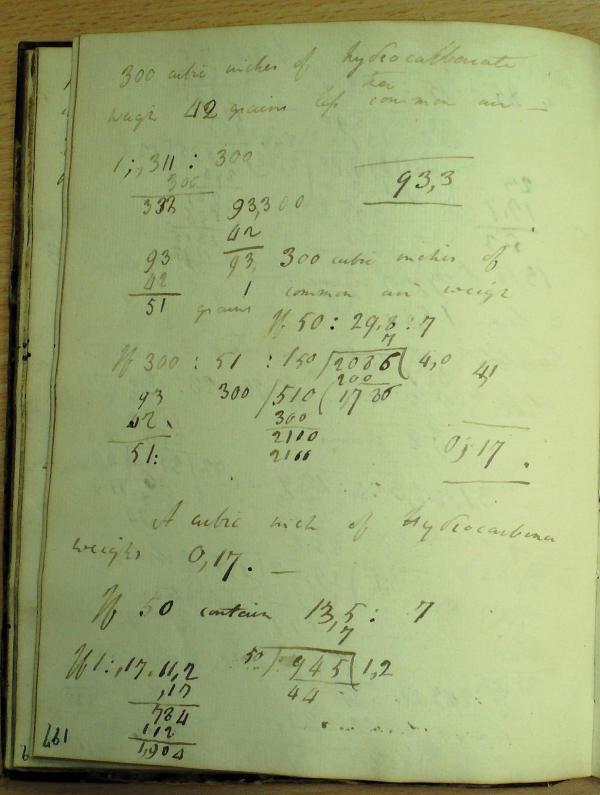 300 cubic inches of hydrocarbonate
weigh 42 grains less than common air —
1 : ,311 : 300
300
93,3
93,300
42
93
42
51
93,
1
300 cubic inches of
common air weigh
grains
If 50 : 29,8 : 7
7
If 300 : 51 : 150
2086 ( 4,0
200
41
93
42
51:
300 / 510 ( 17
300
2110
2100
0,17.
A cubic inch of Hydrocarbonate
weighs 0,17. —
If 50 contain 13,5 : 7
,7
If 1 : ,17 . 11,2
,17
784
112
1,904
50 ) 945 ( 1,2
44